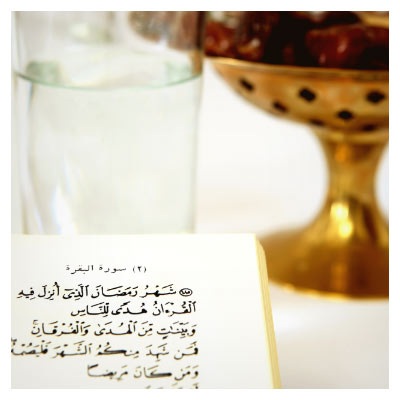 (٢) سورة البقرة
١٨٥ شَهْرُ رَمَضَانَ الَّذِىٓ أُنزِلَ فِيهِ
الْقُرْءَانُ هُدًى لِّلنَّاسِ
وَبَيِّنَٰتٍ مِّنَ الْهُدَىٰ وَالْفُرْقَانِ ۚ
فَمَن شَهِدَ مِنكُمُ الشَّهْرَ فَلْيَصُمْهُ ۖ
وَمَن كَانَ مَرِيضًا